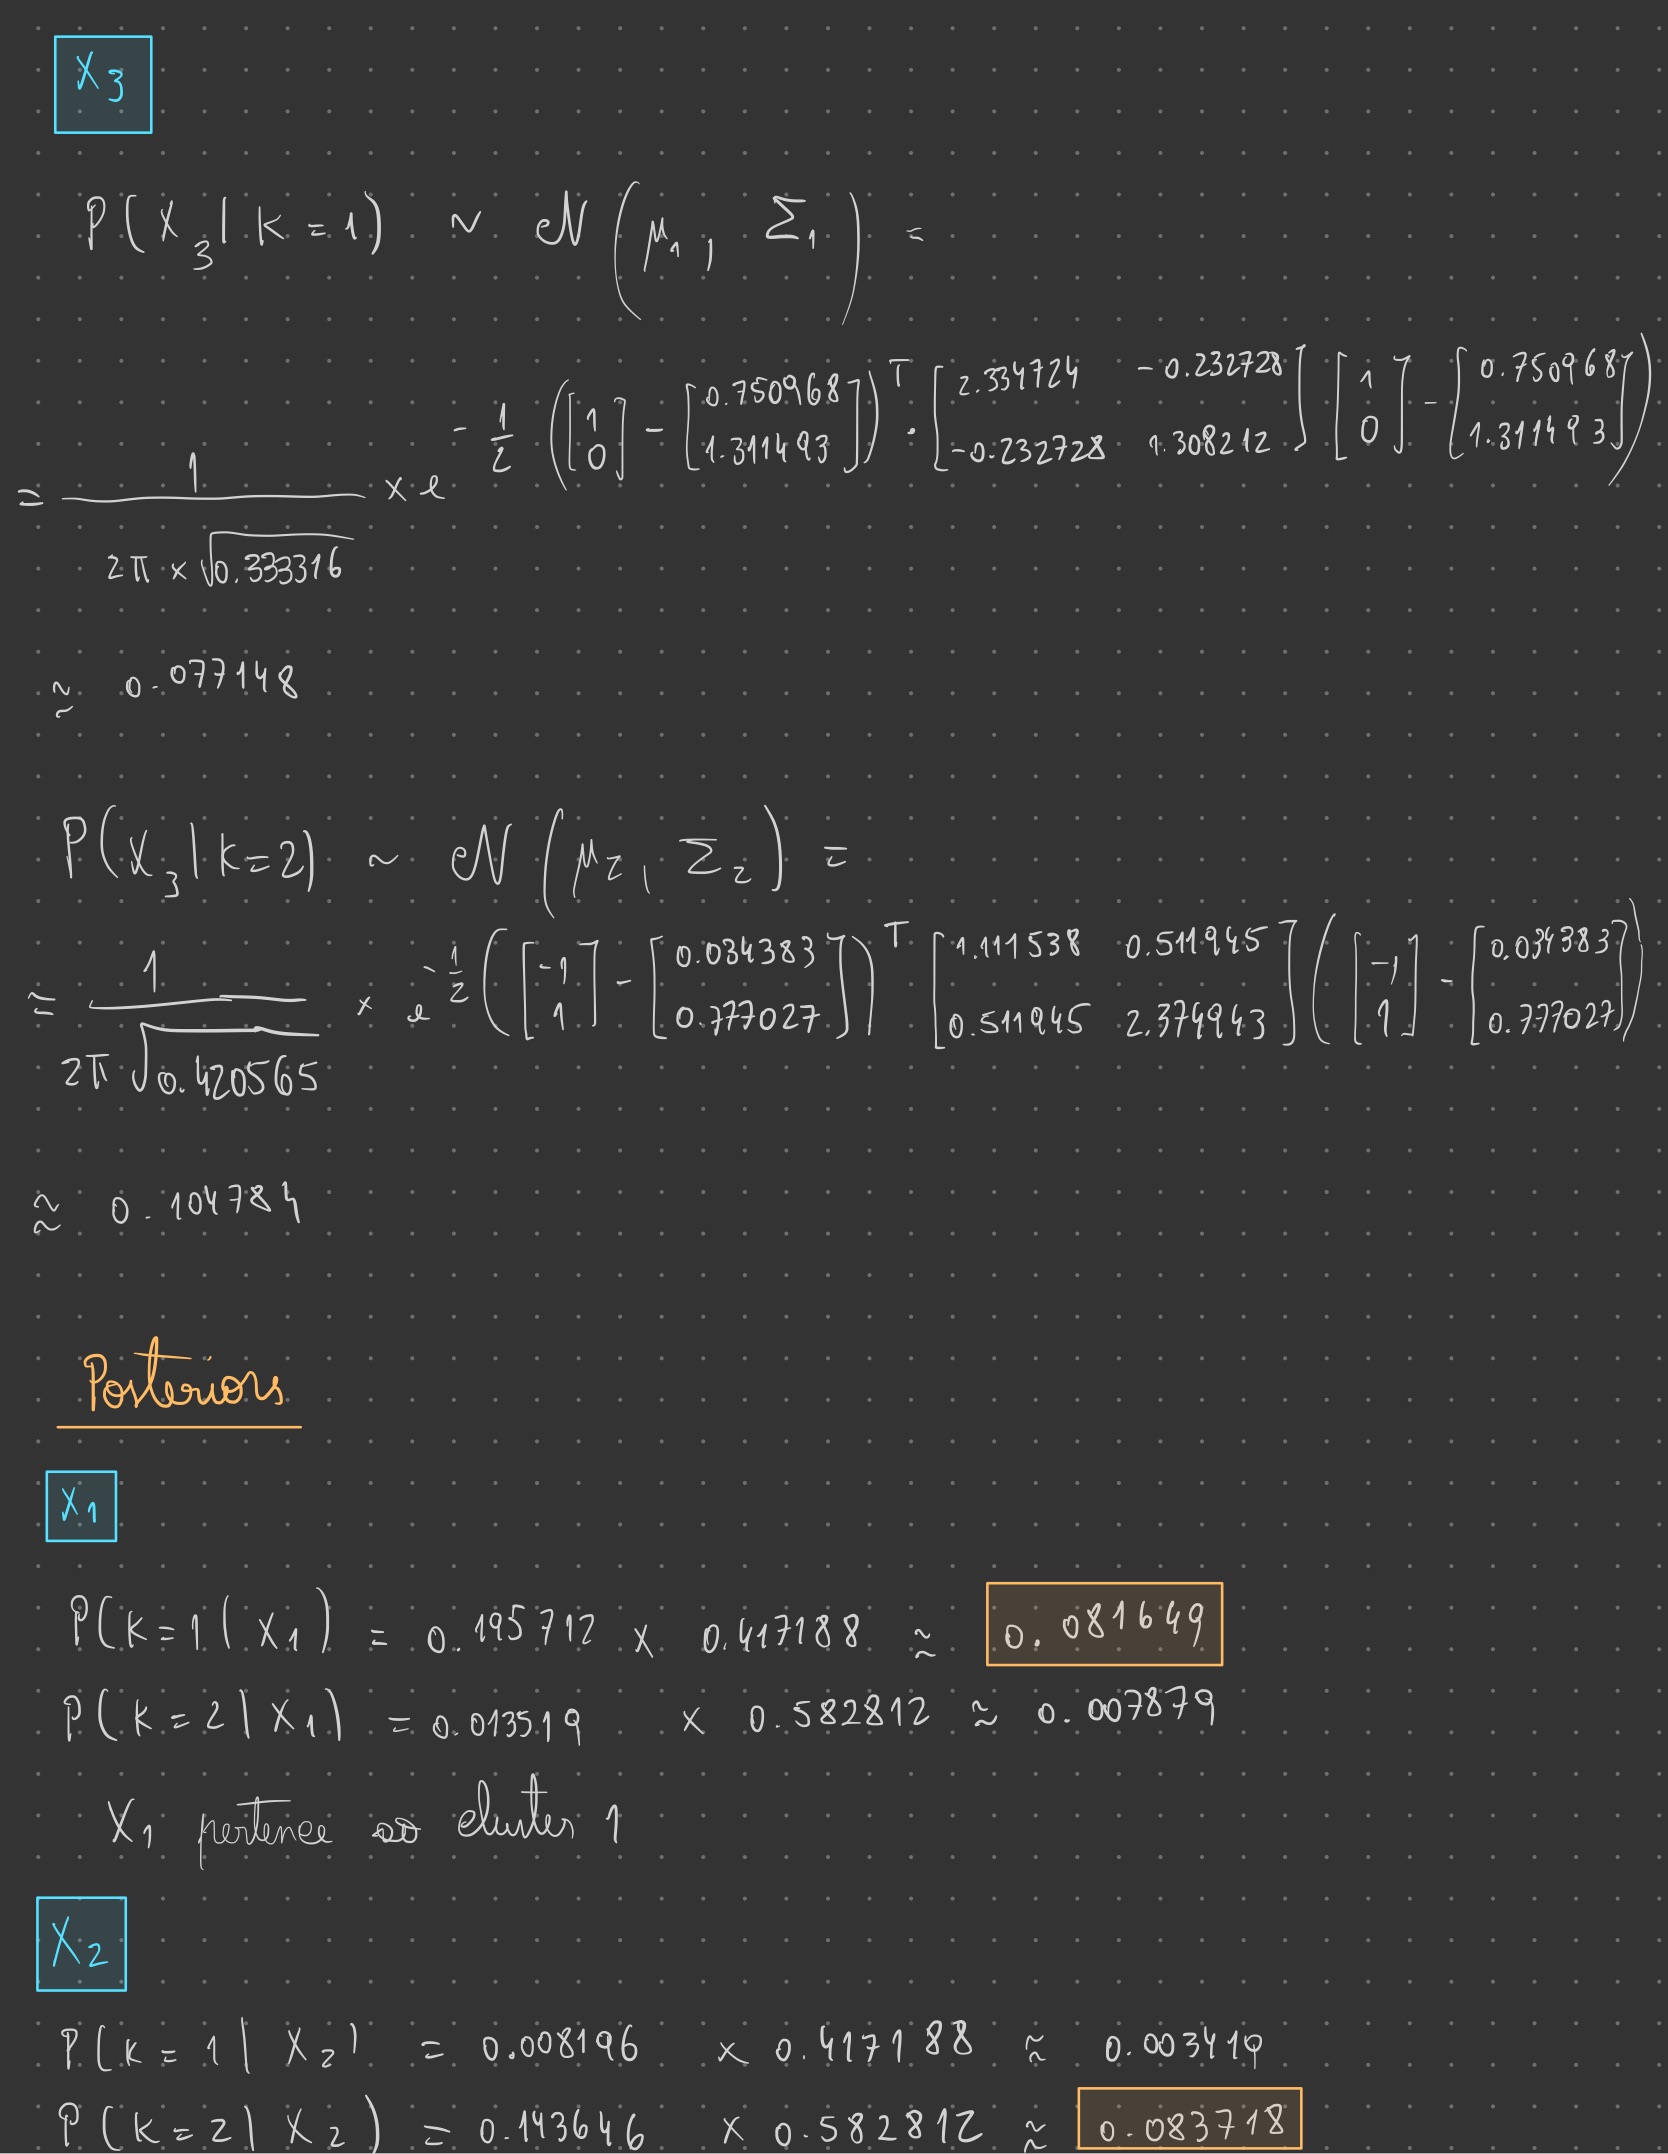 X₃
P(X₃ | K = 1) ~ N(μ₁, Σ₁) =
= 1 / (2π × √0.333316) × e^(-1/2 ([1 0] - [0.750968 1.311493])^T · [2.334724 -0.232728 -0.232728 1.308212] [1 0] - [0.750968 1.311493])
≈ 0.077148
P(X₃ | K = 2) ~ N(μ₂, Σ₂) =
= 1 / (2π √0.420565) × e^(-1/2 ([-1 1] - [0.034383 0.777027])^T [1.111538 0.511945 0.511945 2.374943] ([-1 1] - [0.034383 0.777027]))
≈ 0.104784
Posteriors
X₁
P(K = 1 | X₁) = 0.195712 × 0.417188 ≈ 0.081649
P(K = 2 | X₁) = 0.013519 × 0.582812 ≈ 0.007879
X₁ pertence ao cluster 1
X₂
P(K = 1 | X₂) = 0.008196 × 0.417188 ≈ 0.003419
P(K = 2 | X₂) = 0.143646 × 0.582812 ≈ 0.083718